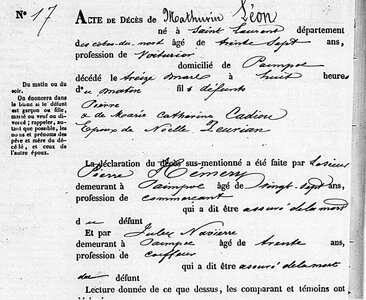 No 17
ACTE DE DÉCÈS de Mathurin Léon
né à Saint Laurent département
des côtes-du-nord âgé de trente Sept ans,
profession de Voiturier
domicilié de Paimpol
décédé le treize mars à huit heures
du matin fils défunts
Pierre
& de Marie Catherine Cadiou
Epoux de Noëlle
Du matin ou du
soir.
On énoncera dans
le blanc si le défunt
est garçon ou fille,
marié ou veuf ou di-
vorcé; rappeler, au-
tant que possible, les
noms et prénoms des
père et mère du dé-
cédé, et ceux de
l'autre époux.
La déclaration du décès sus-mentionné a été faite par
Pierre Hémery
demeurant à Paimpol âgé de vingt-sept ans,
profession de commerçant
qui a dit être assuré de la mort
du défunt
Et par Jules Navierre
demeurant à Paimpol âgé de trente ans,
profession de coiffeur
qui a dit être assuré de la mort
du défunt
Lecture donnée de ce que dessus, les comparant et témoins ont